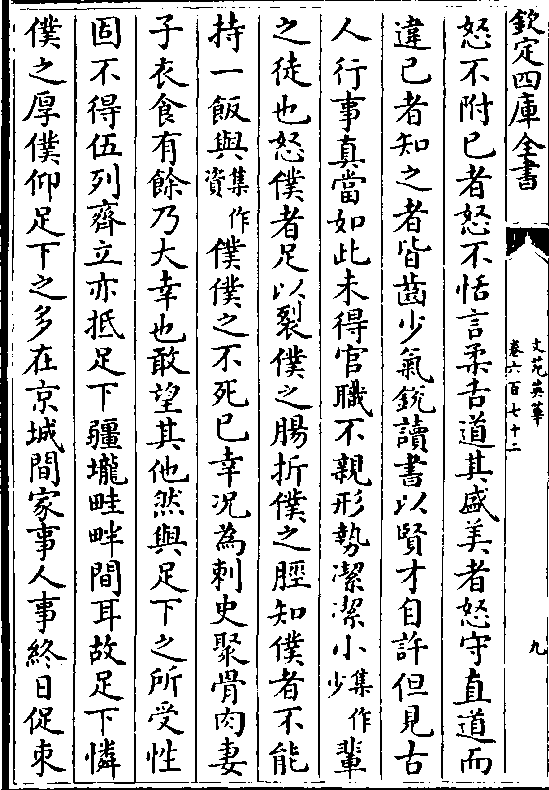 欽定四庫全書
文苑英華
卷六百七十二
九
怒不附已者怒不恬言柔舌道其盛美者怒守直道而
違已者知之者皆齒少氣銳讀書以賢才自許但見古
人行事真當如此未得官職不親形勢潔潔小集作少輩
之徒也怒僕者足以裂僕之腸折僕之脛知僕者不能
持一飯與集作資僕僕之不死已幸況為刺史聚骨肉妻
子衣食有餘乃大幸也敢望其他然與足下之所受性
固不得伍列齊立亦抵足下疆壠畦畔間耳故足下憐
僕之厚僕仰足下之多在京城間家事人事終日促束